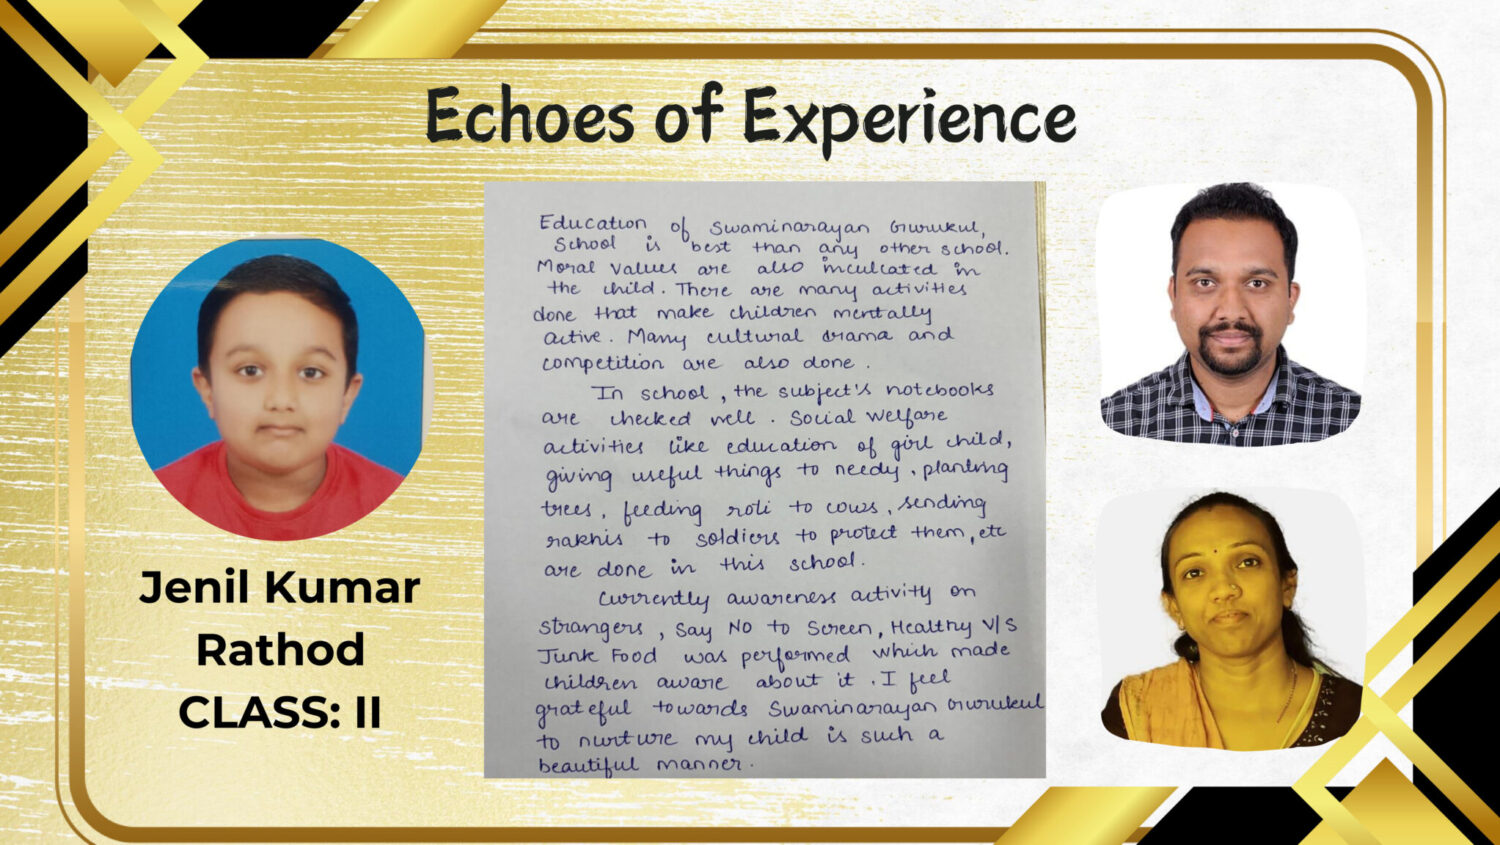 Echoes of Experience
Jenil Kumar
Rathod
CLASS: II
Education of Swaminarayan Gurukul,
School is best than any other school.
Moral values are also inculcated in
the child. There are many activities
done that make children mentally
active. Many cultural drama and
competition are also done.
In school, the subject's notebooks
are checked well. Social welfare
activities like education of girl child,
giving useful things to needy, planting
trees, feeding roti to cows, sending
rakhis to soldiers to protect them, etc
are done in this school.
Currently awareness activity on
strangers, Say NO to Screen, Healthy V/S
Junk Food was performed which made
children aware about it. I feel
grateful towards Swaminarayan Gurukul
to nurture my child is such a
beautiful manner.